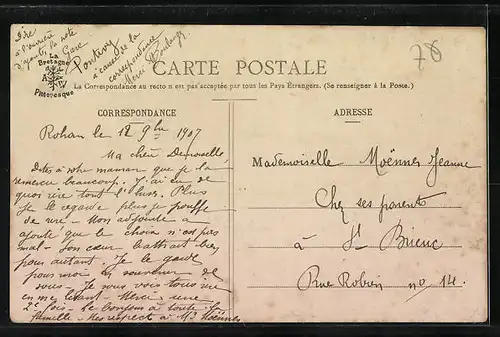 Dire
à Pontivy
La Gare
Pontivy
à cause de la
correspondance
Merci
78
La
Bretagne
Pittoresque
CARTE POSTALE
La Correspondance au recto n'est pas acceptée par tous les Pays Étrangers. (Se renseigner à la Poste.)
CORRESPONDANCE
ADRESSE
Rohan le 12 9bre 1907
Ma chère Demoiselle,
Dites à votre maman que je la
remercie beaucoup. J'ai eu de
quoi rire tout l'huss. Plus
je le regarde plus je pouffe
de rire - Mon adjointe a
ajouté que le choix n'est pas
mal - Son cœur battrait bien
pour autant. Je le garde
pour moi en souvenir de
vous - Je vous vois tous rire
en me lisant - Merci une
2e fois - Le bonjour à toute la
famille - Mes respect à Me Moënnes
Mademoiselle Moënnes Jeanne
Chez ses parents
à St Brieuc
Rue Robien no 14.